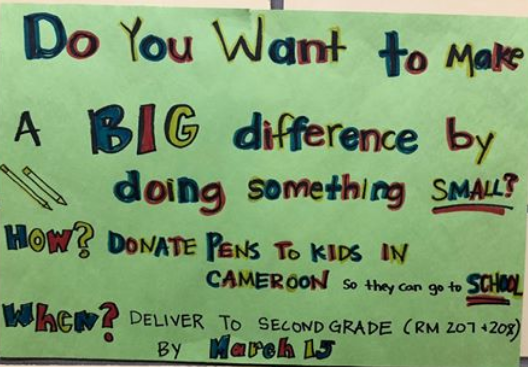 Do You Want to Make
A BIG difference by
doing something SMALL?
HOW? DONATE PENS TO KIDS IN
CAMEROON so they can go to SCHOOL
When? DELIVER TO SECOND GRADE (RM 207+208)
BY March 15